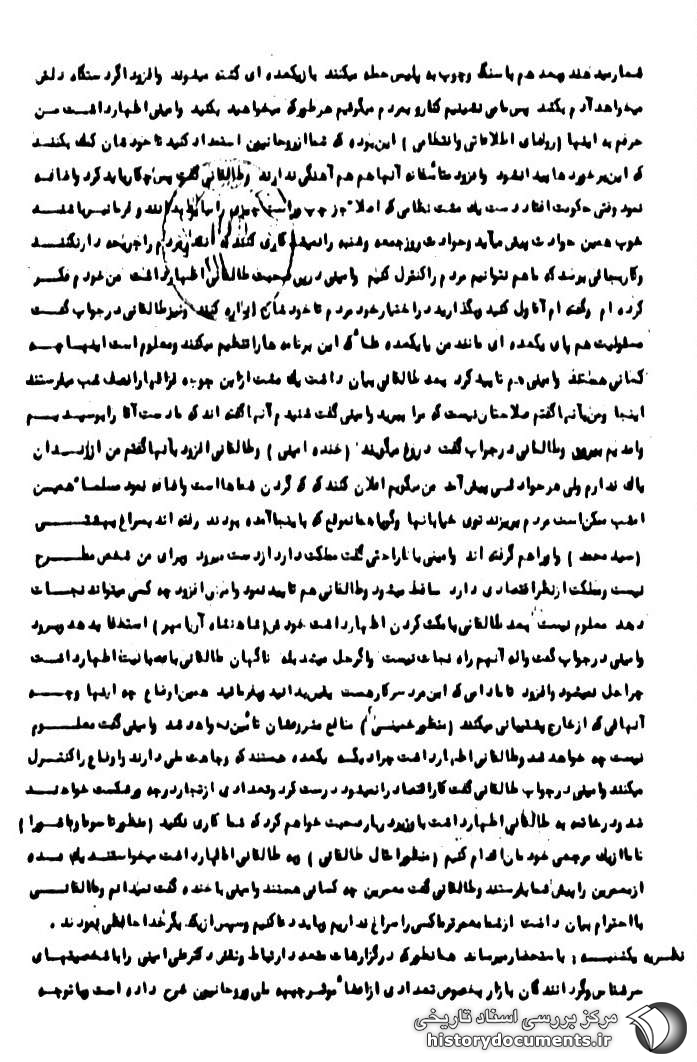 شعار میدهند و بعد هم با سنگ و چوب به پلیس حمله میکنند باز یکعده ای کشته میشوند وافزود اگر دستگاه دلش
میخواهد آدم بکشد پس ما می نشینیم کنار و بمردم میگوئیم هر طور که میخواهید بکنید وامینی اظهار داشت من
حرفم به اینها (روسای اطلاعاتی وانتظامی) این بوده که شما از روحانیون استمداد کنید تا خودشان کمک بکنند
که این برخوردها پیدا نشود وافزود متأسفانه آنها هم هم آهنگی ندارند وطالقانی گفت پس چکار باید کرد واضافه
نمود وقتی حکومت افتاد دست یک مشت نظامی که اصلا جز چپ و راست چیزی را
خوب همین حوادث پیش میآید وحوادث روز جمعه وشنبه را نمیشد کاری کنند که مردم را جریحه دار نکنند
و کار بجائی برسد که ما هم نتوانیم مردم را کنترل کنیم وامینی در پی صحبت طالقانی اظهار داشت من خودم فکر
کرده ام وگفته ام آقا ول کنید وبگذارید در اختیار خود مردم تا خودشان اداره کنند ونیز طالقانی در جواب گفت
مسئولیت هم پای یکعده ای مانند من یا یکعده علما که این برنامه ها را تنظیم میکنند ومعلوم است اینها چه
کسانی هستند وامینی هم تایید کرد بعد طالقانی بیان داشت یک مشت از این جوجه قزاقها را نصف شب میفرستند
اینجا ومن بآنها گفتم صلاحتان نیست که مرا ببرید وامینی گفت شنیدم آنها گفته اند که ما دست آقا را بوسیدیم
وآمدیم بیرون وطالقانی در جواب گفت دروغ میگویند (خنده امینی) وطالقانی افزود بآنها گفتم من از زندان
باک ندارم ولی هر حوادثی پیش آمد من میگویم اعلان کنند که گردن شماها است واضافه نمود مسلماً همین
امشب ممکن است مردم بریزند توی خیابانها وگویا همانموقع که باینجا آمده بودند رفته اند بسراغ بهشتی
(سید محمد) واو را هم گرفته اند وامینی با ناراحتی گفت مملکت دارد از دست میرود وبرای من شخص مطرح
نیست ومملکت از نظر اقتصادی دارد ساقط میشود وطالقانی هم تایید نمود وامینی افزود چه کسی میتواند نجات
دهد معلوم نیست بعد طالقانی با مکث کردن اظهار داشت خودش (شاهنشاه آریامهر) استعفا بدهد وبرود
وامینی در جواب گفت واله آنهم راه نجات نیست واگر حل میشد بله ناگهان طالقانی با عصبانیت اظهار داشت
چرا حل نمیشود وافزود تا مادامی که این مرد سر کار هست یقین بدانید وبفرمائید همین اوضاع چه اینها وچه
آنهائی که از خارج پشتیبانی میکنند (منظور خمینی) منافع مشروعشان تأمین نخواهد شد وامینی گفت معلوم
نیست چه خواهد شد وطالقانی اظهار داشت چرا دیگه یکعده هستند که وجاهت ملی دارند واوضاع را کنترل
میکنند وامینی در جواب طالقانی گفت کار اقتصاد را نمیشود درست کرد وتعدادی از تجار درجه ورشکست خواهند
شد ودر خاتمه به طالقانی اظهار داشت با وزیر دربار صحبت خواهم کرد که شما کاری نکنید (منظور تاسوعا وعاشورا)
تا ما از یک مرجعی خودمان اقدام کنیم (منظور امثال طالقانی) وبه طالقانی اظهار داشت میخواستند یک عده
از معمرین را پیش شما بفرستند وطالقانی گفت معمرین چه کسانی هستند وامینی با خنده گفت نمیدانم وطالقانی
با احترام بیان داشت از شما معمرتر ما کسی را سراغ نداریم وباید دعا کنیم وسپس از یکدیگر خداحافظی نمودند .
نظریه یکشنبه : باستحضار میرساند همانطور که در گزارشات متعدد ارتباط ونقش دکتر علی امینی را با شخصیتهای
سرشناس وگردانندگان بازار بخصوص تعدادی از اعضاء موثر جبهه ملی وروحانیون شرح داده است وبا توجه
مرکز بررسی اسناد تاریخی
historydocuments.ir